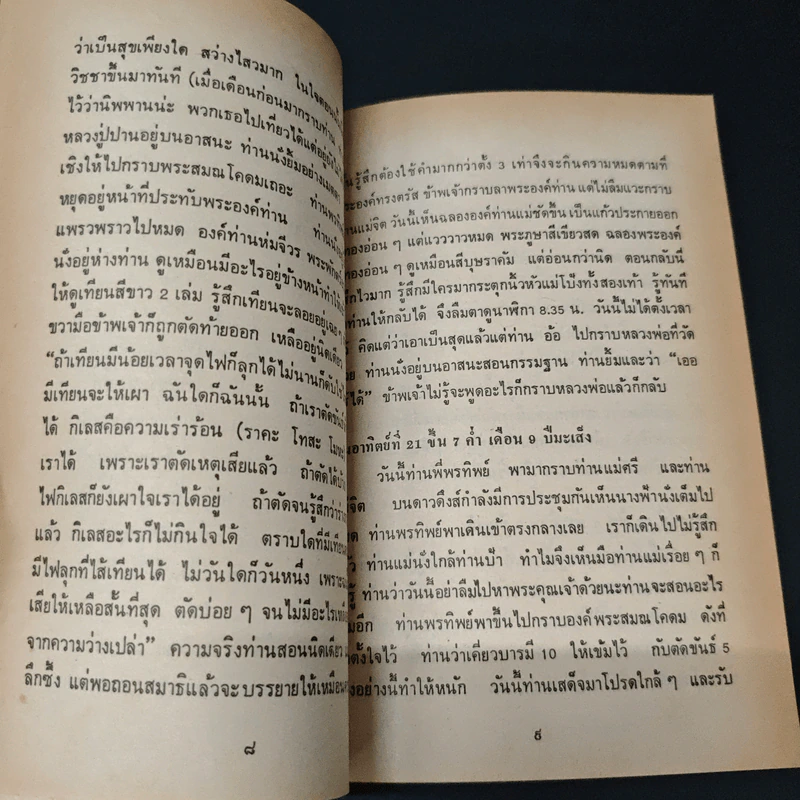 ว่าเป็นสุขเพียงใด สว่างไสวมาก ในใจตอนนั้น
วิชชาขึ้นมาทันที (เมื่อเดือนก่อนมากราบท่าน
ไว้ว่านิพพานน่ะ พวกเธอไปเที่ยวได้แต่อยู่ยังไม่
หลวงปู่ปานอยู่บนอาสนะ ท่านนั่งยิ้มอย่างเมตตา
เชิงให้ไปกราบพระสมณโคดมเถอะ ท่าน
หยุดอยู่หน้าที่ประทับพระองค์ท่าน ท่านนั่ง
แพรวพราวไปหมด องค์ท่านห่มจีวร พระพักตร์
นั่งอยู่ห่างท่าน ดูเหมือนมีอะไรอยู่ข้างหน้าทำให้
ให้ดูเทียนสีขาว 2 เล่ม รู้สึกเทียนจะลอยอยู่เฉย
ขวามือข้าพเจ้าก็ถูกตัดท้ายออก เหลืออยู่นิดเดียว
“ถ้าเทียนมีน้อยเวลาจุดไฟก็ลุกได้ไม่นานก็ดับไป
มีเทียนจะให้เผา ฉันใดก็ฉันนั้น ถ้าเราตัดขันธ์
ได้ กิเลสคือความเร่าร้อน (ราคะ โทสะ โมหะ
เราได้ เพราะเราตัดเหตุเสียแล้ว ถ้าตัดได้บ้าง
ไฟกิเลสก็ยังเผาใจเราได้อยู่ ถ้าตัดจนรู้สึกว่าร่าง
แล้ว กิเลสอะไรก็ไม่กินใจได้ ตราบใดที่มีเทียน
มีไฟลุกที่ไส้เทียนได้ ไม่วันใดก็วันหนึ่ง เพราะ
เสียให้เหลือสั้นที่สุด ตัดบ่อย ๆ จนไม่มีอะไรเหลือ
จากความว่างเปล่า” ความจริงท่านสอนนิดเดียว
ลึกซึ้ง แต่พอถอนสมาธิแล้วจะบรรยายให้เหมือน
๘
รู้สึกต้องใช้คำมากกว่าตั้ง 3 เท่าจึงจะกินความหมดตามที่
ะองค์ทรงตรัส ข้าพเจ้ากราบลาพระองค์ท่าน แต่ไม่ลืมแวะกราบ
านแม่จิต วันนี้เห็นฉลององค์ท่านแม่ชัดขึ้น เป็นแก้วประกายออก
ทองอ่อน ๆ แต่แวววาวหมด พระภูษาสีเขียวสด ฉลองพระองค์
ทองอ่อน ๆ ดูเหมือนสีบุษราคัม แต่อ่อนกว่านิด ตอนกลับนี้
ึกไวมาก รู้สึกมีใครมากระตุกนิ้วหัวแม่โป้งทั้งสองเท้า รู้ทันที
ท่านให้กลับได้ จึงลืมตาดูนาฬิกา 8.35 น. วันนี้ไม่ได้ตั้งเวลา
คิดแต่ว่าเอาเป็นสุดแล้วแต่ท่าน อ้อ ไปกราบหลวงพ่อที่วัด
ย ท่านนั่งอยู่บนอาสนะสอนกรรมฐาน ท่านยิ้มและว่า “เออ
ได้” ข้าพเจ้าไม่รู้จะพูดอะไรก็กราบหลวงพ่อแล้วก็กลับ
อาทิตย์ที่ 21 ขึ้น 7 ค่ำ เดือน 9 ปีมะเส็ง
วันนี้ท่านพี่พรทิพย์ พามากราบท่านแม่ศรี และท่าน
จิต บนดาวดึงส์กำลังมีการประชุมกันเห็นนางฟ้านั่งเต็มไป
ด ท่านพรทิพย์พาเดินเข้าตรงกลางเลย เราก็เดินไปไม่รู้สึก
ว ท่านแม่นั่งใกล้ท่านป้า ทำไมจึงเห็นมือท่านแม่เรื่อย ๆ ก็
รู้ ท่านว่าวันนี้อย่าลืมไปหาพระคุณเจ้าด้วยนะท่านจะสอนอะไร
มอีก ท่านพรทิพย์พาขึ้นไปกราบองค์พระสมณโคดม ดังที่
ตั้งใจไว้ ท่านว่าเคี่ยวบารมี 10 ให้เข้มไว้ กับตัดขันธ์ 5
งอย่างนี้ทำให้หนัก วันนี้ท่านเสด็จมาโปรดใกล้ ๆ และรับ